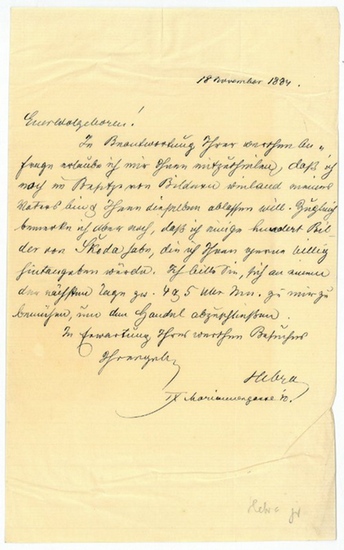 18 November 1884.
Euerwolgeboren!
In Beantwortung Ihrer werthen An-
frage erlaube ich mir Ihnen mitzutheilen, daß ich
noch im Besitze von Bildern weiland meines
Vaters bin & Ihnen dieselben ablassen will. Zugleich
bemerke ich aber noch, daß ich einige hundert Bil-
der von Skoda habe, die ich Ihnen gerne billig
hintangeben würde. Ich bitte Sie, sich an einem
der nächsten Tage zw. 4 & 5 Uhr Nm. zu mir zu
bemühen, um den Handel abzuschließen.
In Erwartung Ihres werthen Besuches
Ihr ergeb.
Hebra
IX Mariannengasse 10.
Hebra jr